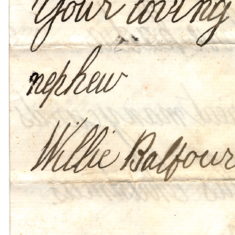 Your loving
nephew
Willie Balfour